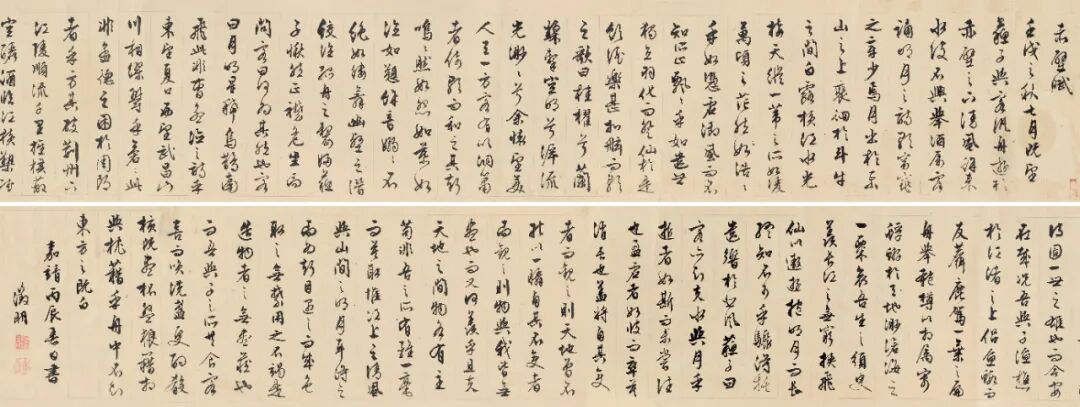 赤壁賦
壬戌之秋七月既望
蘇子與客汎舟遊於
赤壁之下清風徐來
水波不興舉酒屬客
誦明月之詩歌窈窕
之章少焉月出於東
山之上裵徊於斗牛
之間白露橫江水光
接天縱一葦之所如陵
萬頃之茫然浩浩
乎如憑虛御風而不
知其所止飄飄乎如遺世
獨立羽化而登仙於是
飲酒樂甚扣舷而歌
之歌曰桂櫂兮蘭
槳擊空明兮泝流
光渺渺兮余懷望美
人兮天一方客有吹洞簫
者倚歌而和之其聲
嗚嗚然如怨如慕如
泣如訴餘音嫋嫋不
絕如縷舞幽壑之潛
蛟泣孤舟之嫠婦蘇
子愀然正襟危坐而
問客曰何為其然也客
曰月明星稀烏鵲南
飛此非曹孟德之詩乎
東望夏口西望武昌山
川相繆鬱乎蒼蒼此
非孟德之困於周郎
者乎方其破荊州下
江陵順流千里旌旗蔽
空釃酒臨江橫槊賦
詩固一世之雄也而今安
在哉況吾與子漁樵
於江渚之上侶魚蝦而
友麋鹿駕一葉之扁
舟舉匏樽以相屬寄
蜉蝣於天地渺滄海之
一粟哀吾生之須臾
羨長江之無窮挾飛
仙以遨遊抱明月而長
終知不可乎驟得託
遺響於悲風蘇子曰
客亦知夫水與月乎
逝者如斯而未嘗往
也盈虛者如彼而卒莫
消長也蓋將自其變
者而觀之則天地曾不
能以一瞬自其不變者
而觀之則物與我皆無
盡也而又何羨乎且夫
天地之間物各有主
苟非吾之所有雖一毫
而莫取惟江上之清風
與山間之明月耳得之
而為聲目遇之而成色
取之無禁用之不竭是
造物者之無盡藏也
而吾與子之所共食客
喜而笑洗盞更酌肴
核既盡杯盤狼籍相
與枕藉乎舟中不知
東方之既白
嘉靖丙辰春日書
徵明